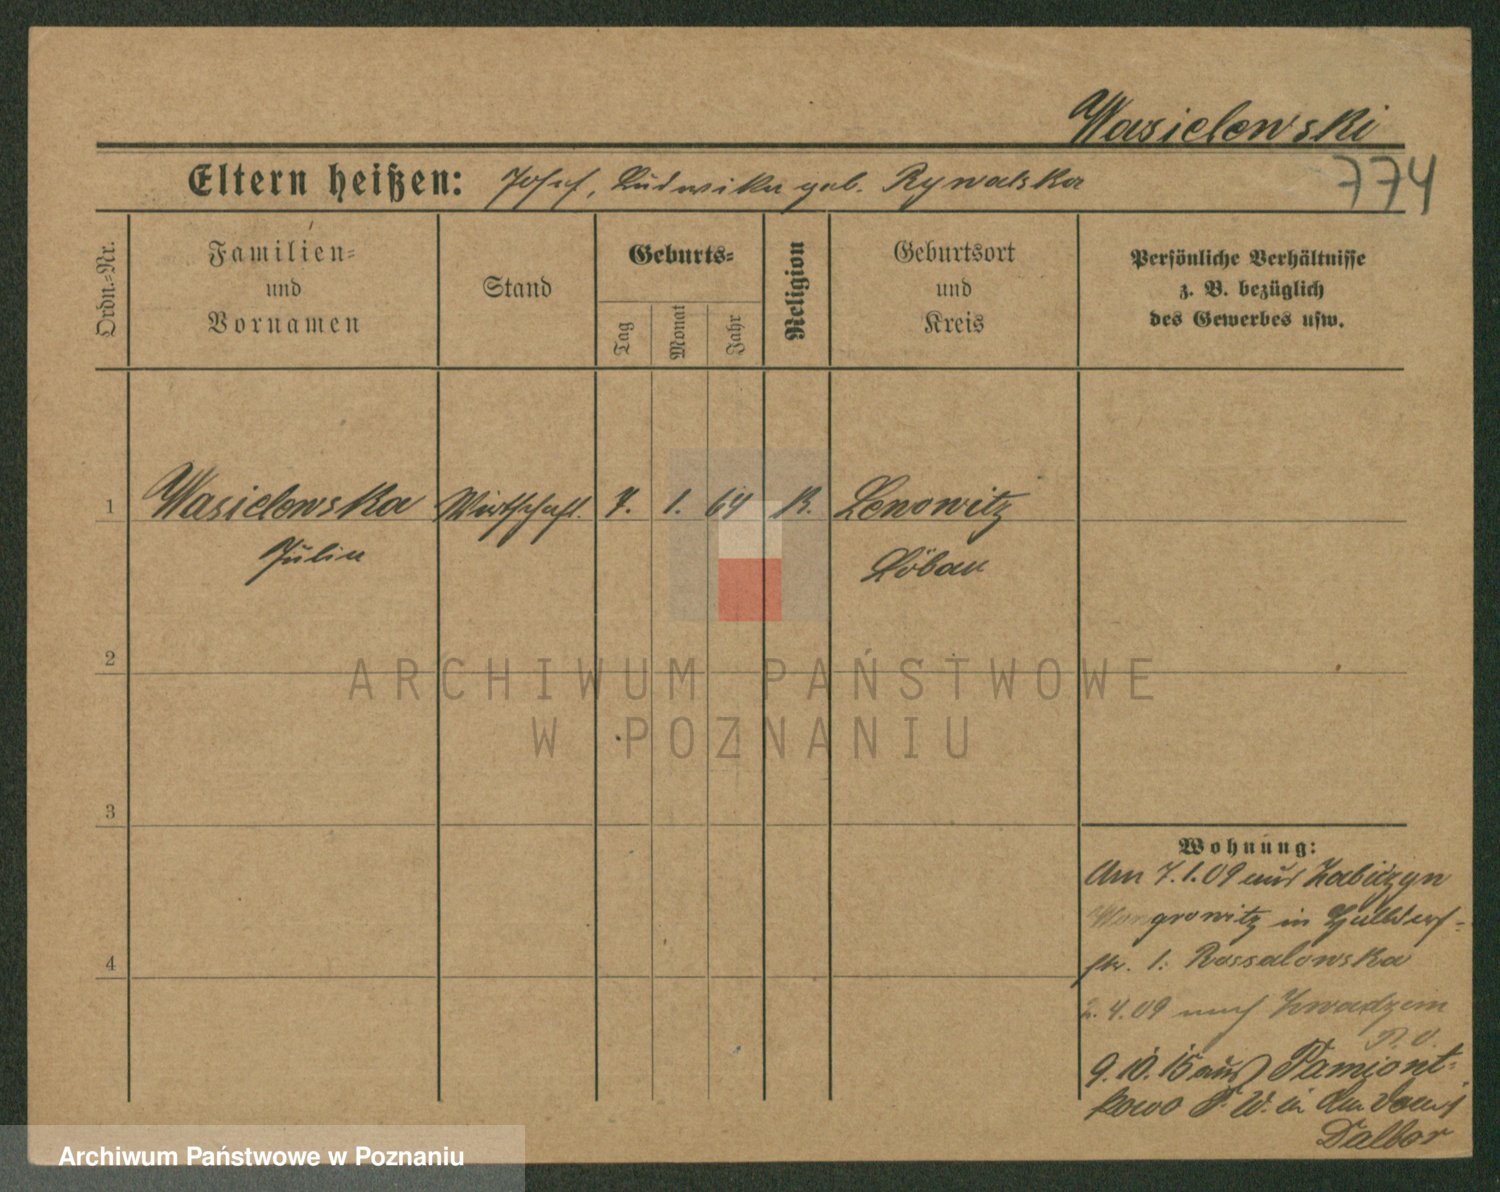 Wasielewski
774
Eltern heißen: Josef, Ludwika geb. Rywalska
Ordn.=Nr.
Familien=
und
Vornamen
Stand
Geburts=
Tag
Monat
Jahr
Religion
Geburtsort
und
Kreis
Persönliche Verhältnisse
z. B. bezüglich
des Gewerbes usw.
1 Wasielewska Wirtschaft. 7. 1. 64 K. Lenowitz
Julia Löbau
2
3
4
Wohnung:
Am 7.1.09 aus
Wongrowitz in
str. 1. Rossalowska
2.4.09 nach
9.10.15 aus Pamiont-
kowo P. W. in
Dalbor
ARCHIWUM PAŃSTWOWE
W POZNANIU
Archiwum Państwowe w Poznaniu